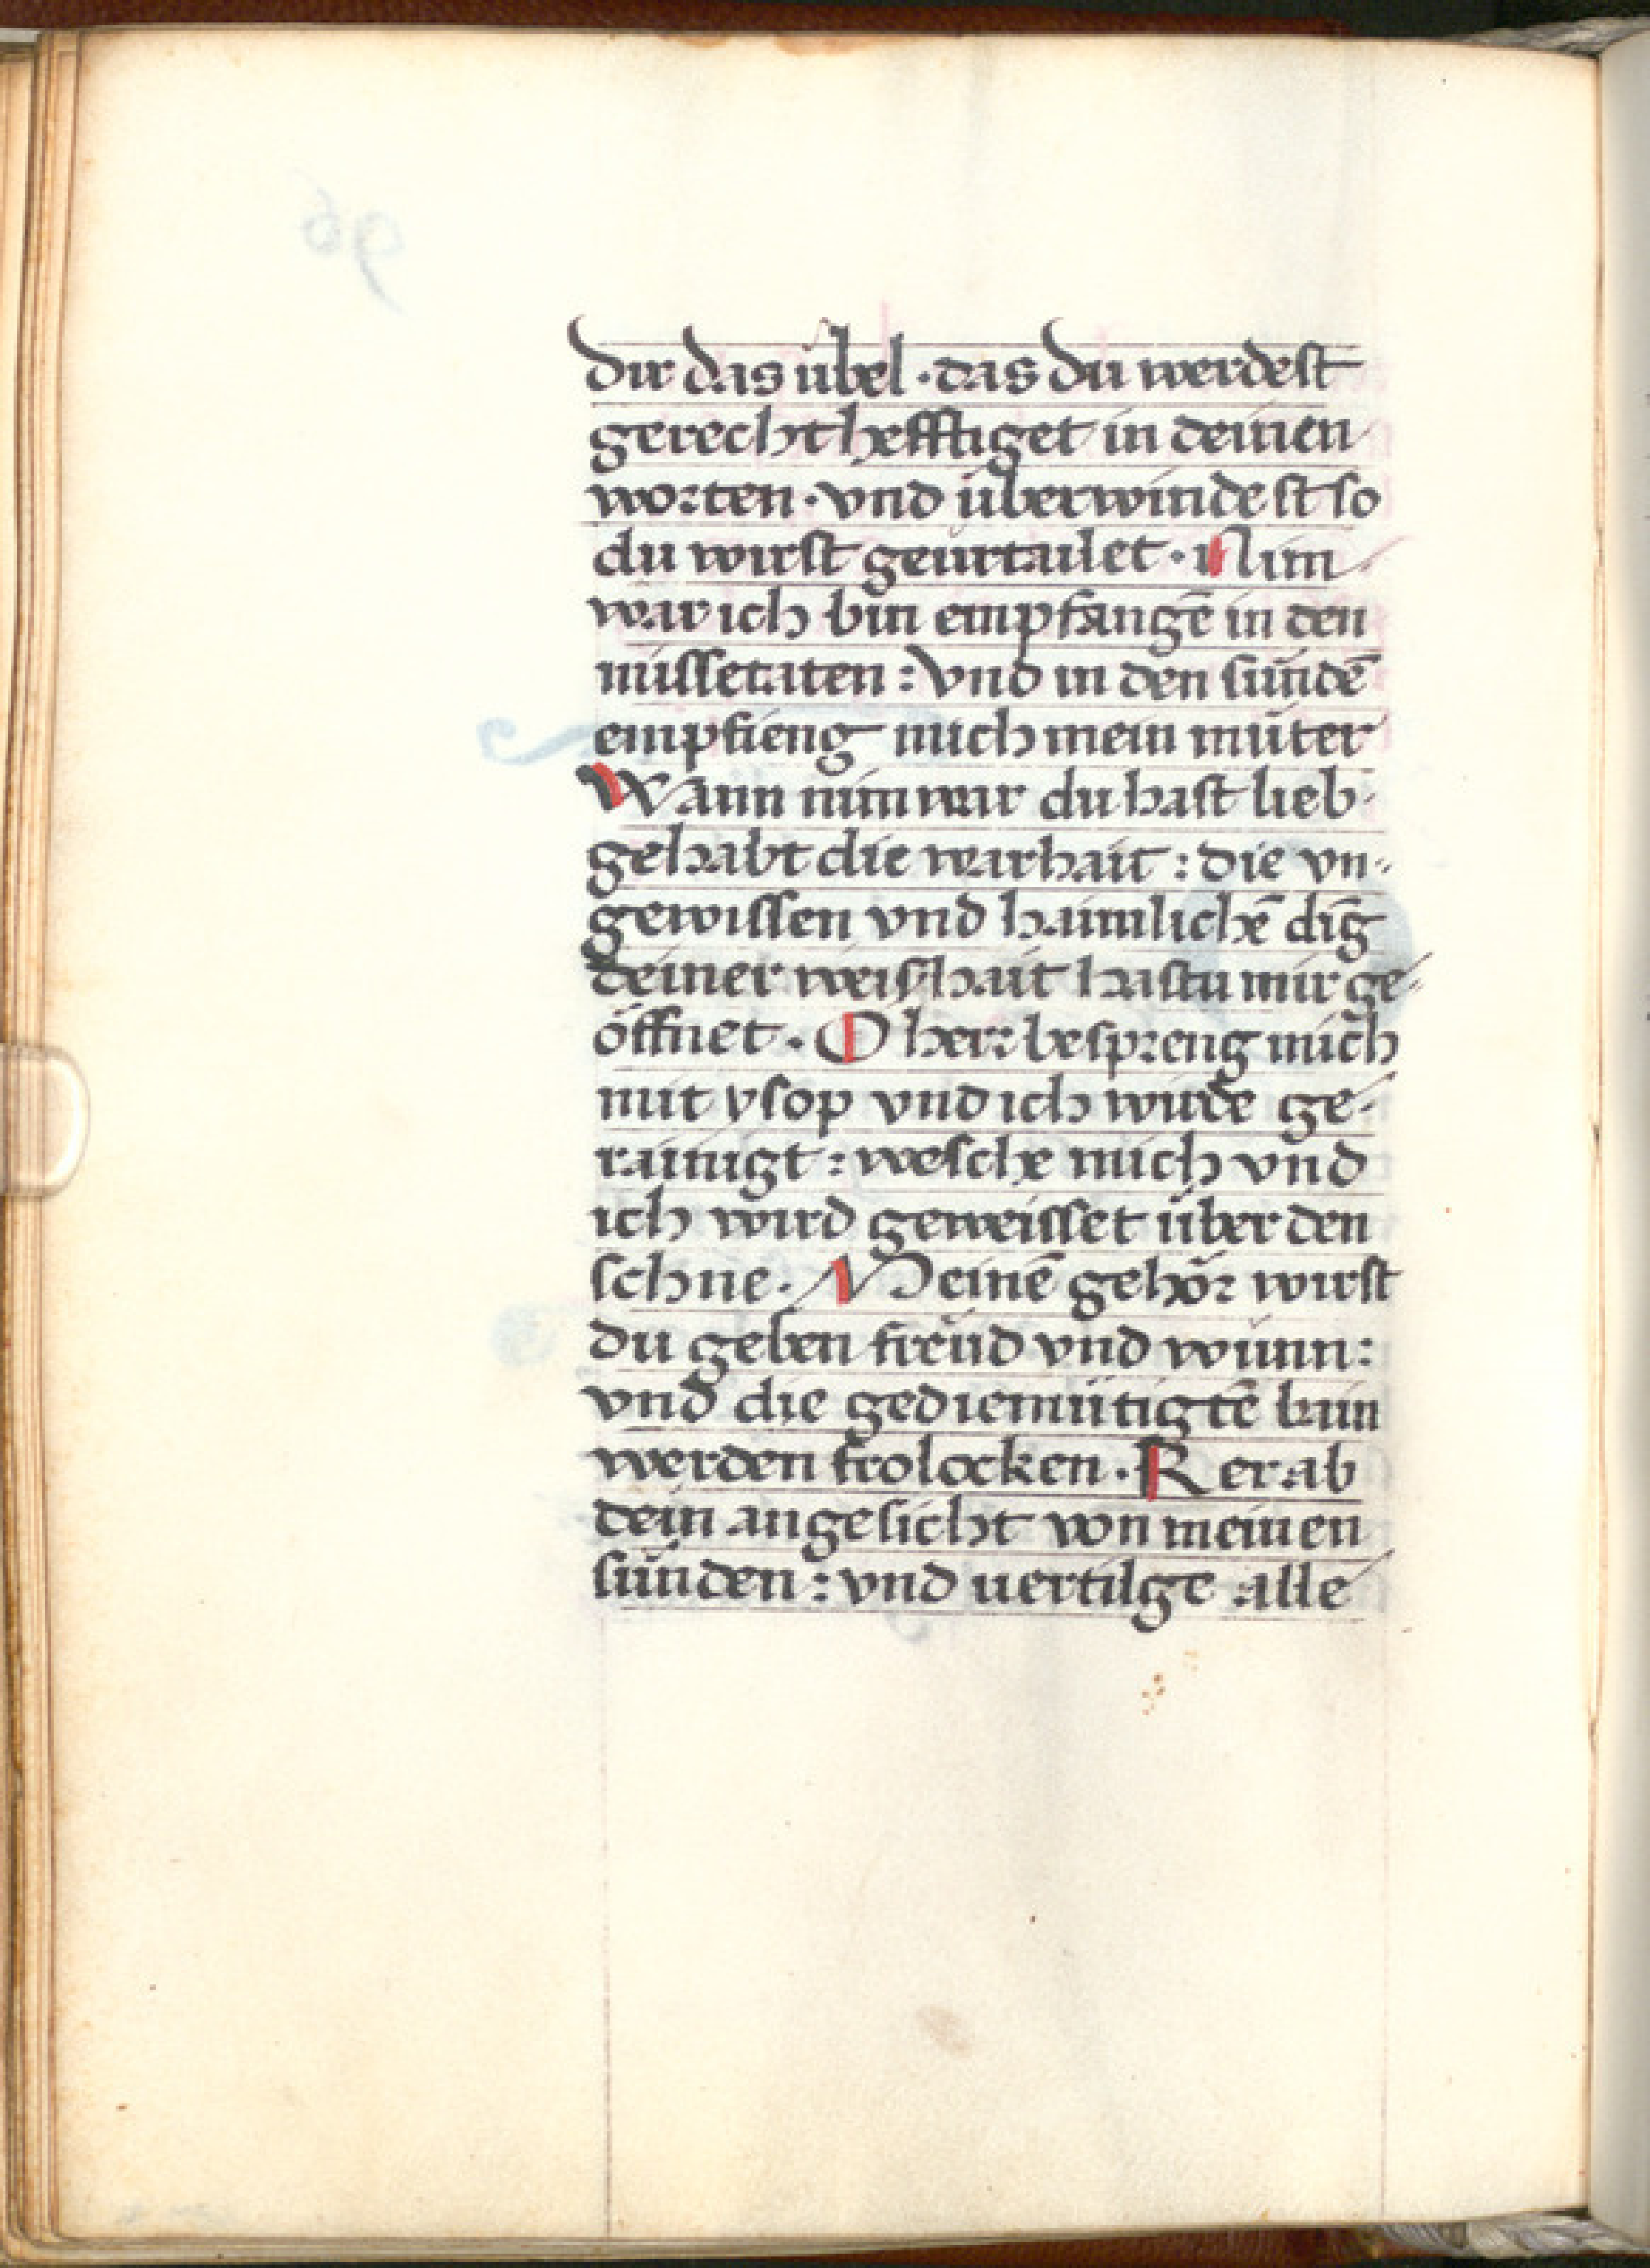 dir das übel · das du werdest
gerechthefftiget in deinen
worten · vnd überwindest so
du wirst geurtailet · Nim
war ich bin empfangē in den
missetaten : vnd in den sündē
empfieng mich mein můter
Wann nim war du hast lieb
gehabt die warhait : die vn-
gewissen vnd haimlichē dīg
deiner weishait hastu mir ge-
öffnet · O herr bespreng mich
mit ysop vnd ich würde ge-
rainigt : wesche mich vnd
ich wird geweisset über den
schne · Meinē gehör wirst
du geben freüd vnd wünn :
vnd die gediemütigtē bain
werden frolocken · Ker ab
dein angesicht von meinen
sünden : vnd uertilge alle